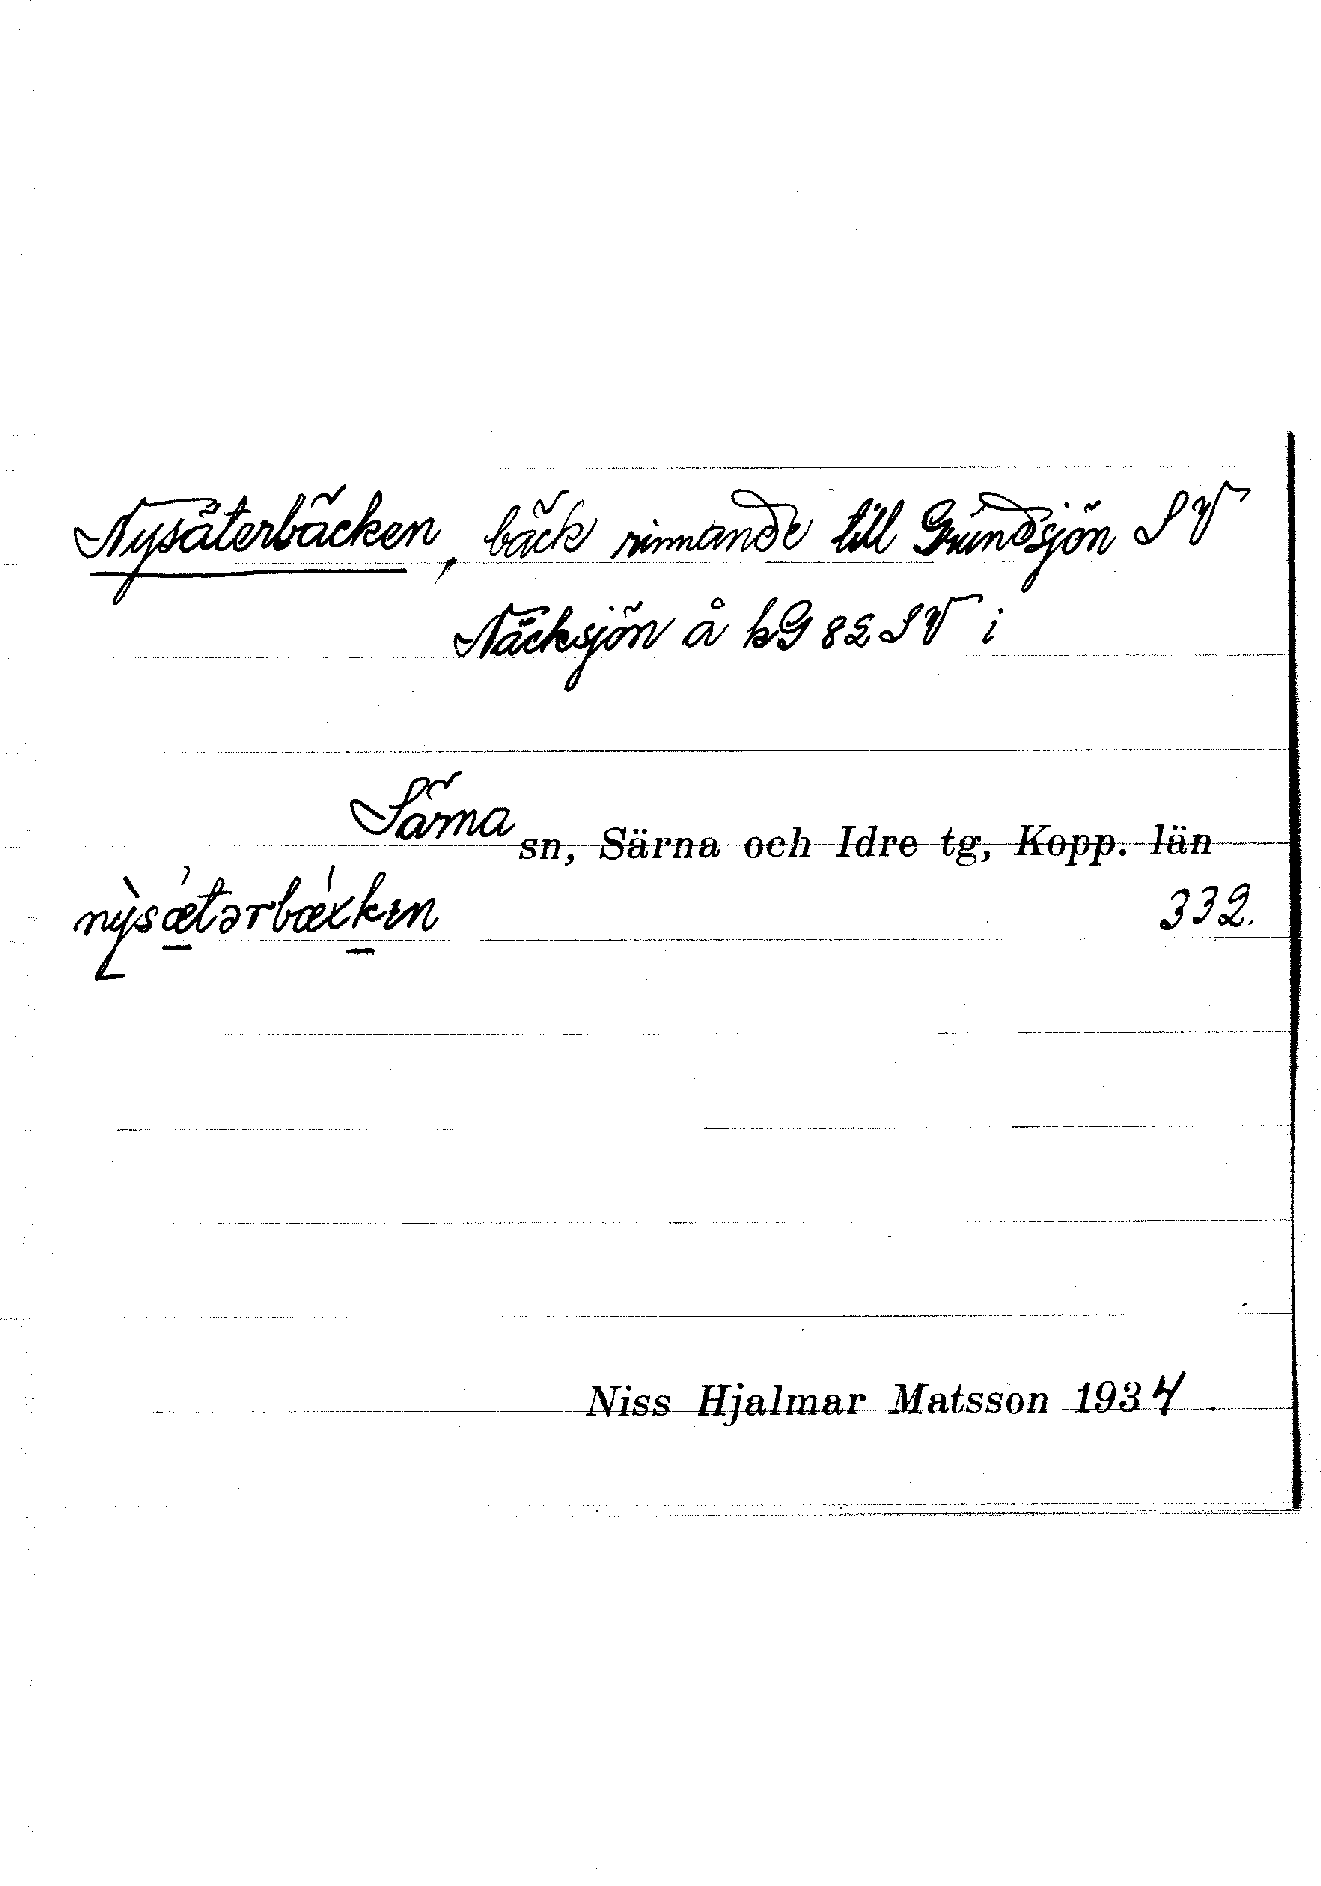 Nysäterbäcken, bäck rinnande till Grundsjön SV
Näcksjön å kG 82 SV i
Särna sn, Särna och Idre tg, Kopp. län
nỳsǽtərbǽxkın 332.
Niss Hjalmar Matsson 1934.